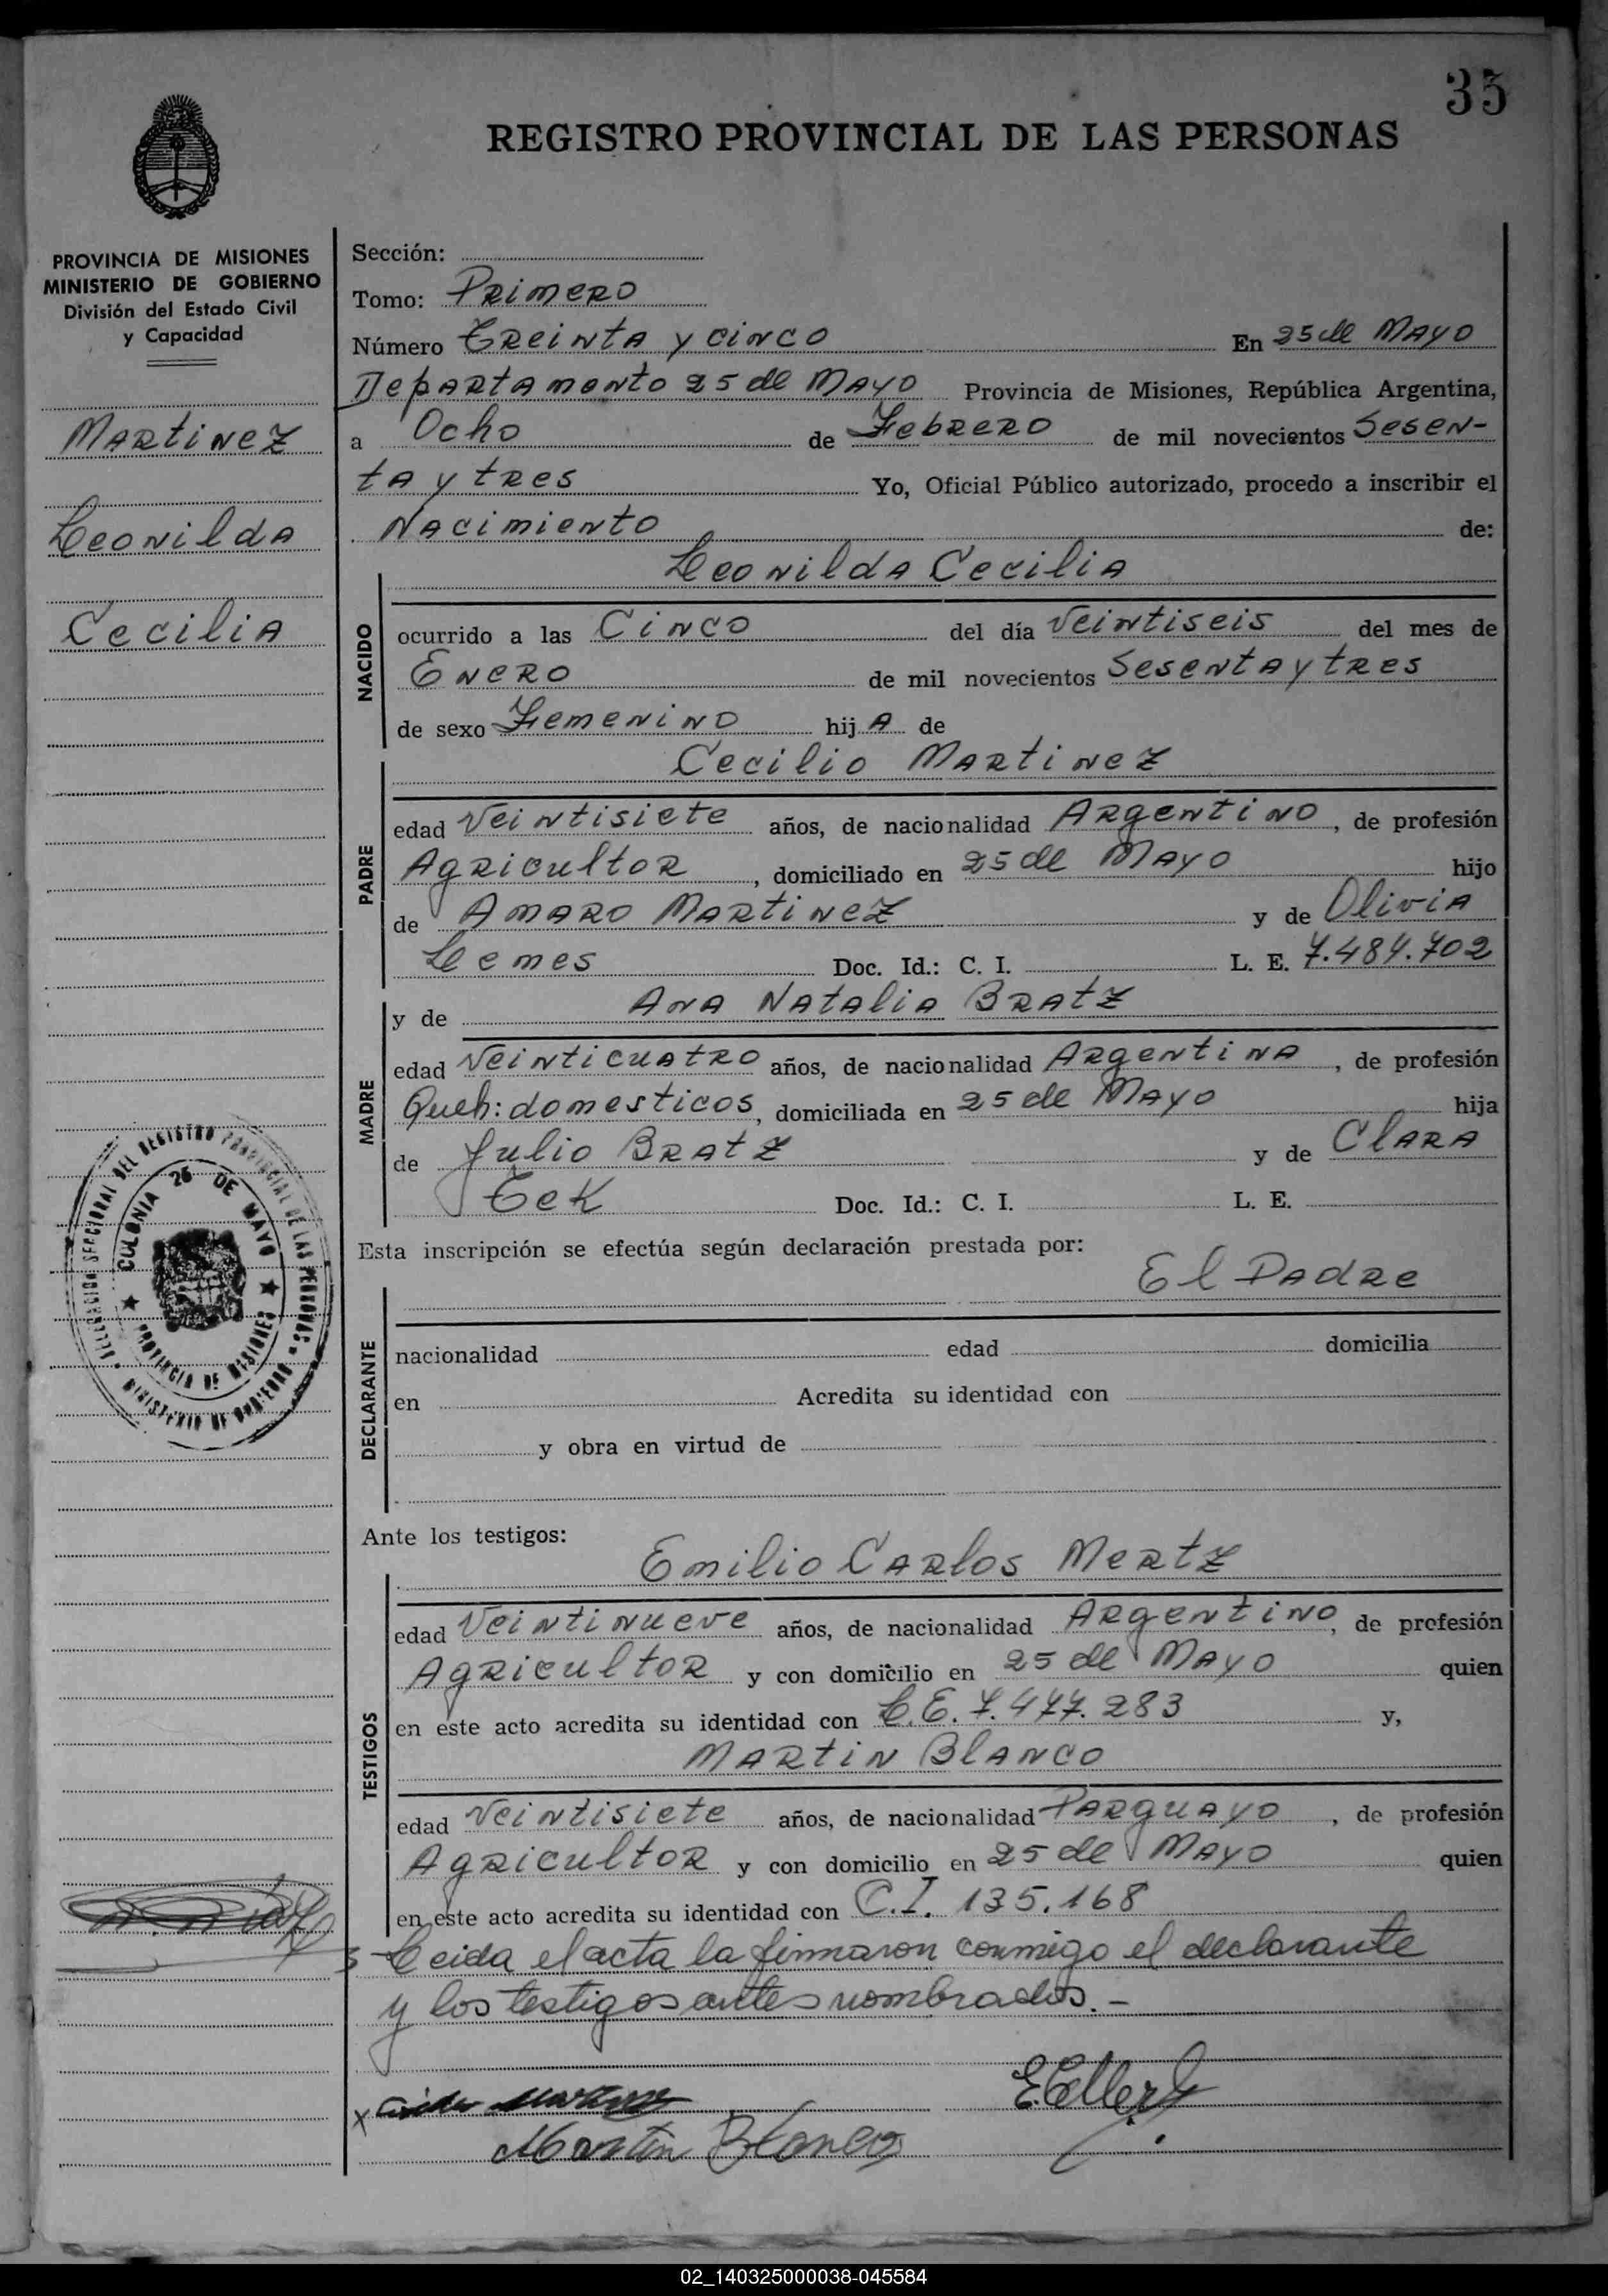 35
REGISTRO PROVINCIAL DE LAS PERSONAS
PROVINCIA DE MISIONES
MINISTERIO DE GOBIERNO
División del Estado Civil
y Capacidad
Martinez
Leonilda
Cecilia
COLONIA 25 DE MAYO
PROVINCIA DE MISIONES
Sección:
Tomo: Primero
Número Treinta y cinco En 25 de Mayo
Departamento 25 de Mayo Provincia de Misiones, República Argentina,
a Ocho de Febrero de mil novecientos Sesen-
ta y tres Yo, Oficial Público autorizado, procedo a inscribir el
Nacimiento de:
Leonilda Cecilia
NACIDO
ocurrido a las Cinco del día Veintiseis del mes de
Enero de mil novecientos Sesenta y tres
de sexo Femenino hija de
Cecilio Martinez
PADRE
edad Veintisiete años, de nacionalidad Argentino, de profesión
Agricultor, domiciliado en 25 de Mayo hijo
de Amaro Martinez y de Olivia
Lemes Doc. Id.: C. I. L. E. 7.484.702
y de Ana Natalia Bratz
MADRE
edad Veinticuatro años, de nacionalidad Argentina, de profesión
Queh: domesticos, domiciliada en 25 de Mayo hija
de Julio Bratz y de Clara
Tek Doc. Id.: C. I. L. E.
Esta inscripción se efectúa según declaración prestada por:
El Padre
DECLARANTE
nacionalidad edad domicilia
en Acredita su identidad con
y obra en virtud de
Ante los testigos:
Emilio Carlos Mertz
TESTIGOS
edad Veintinueve años, de nacionalidad Argentino, de profesión
Agricultor y con domicilio en 25 de Mayo quien
en este acto acredita su identidad con L.E. 7.477.283 y,
Martin Blanco
edad Veintisiete años, de nacionalidad Parguayo, de profesión
Agricultor y con domicilio en 25 de Mayo quien
en este acto acredita su identidad con C.I. 135.168
Leida el acta la firmaron conmigo el declarante
y los testigos antes nombrados.-
Martin Blanco
02_140325000038-045584